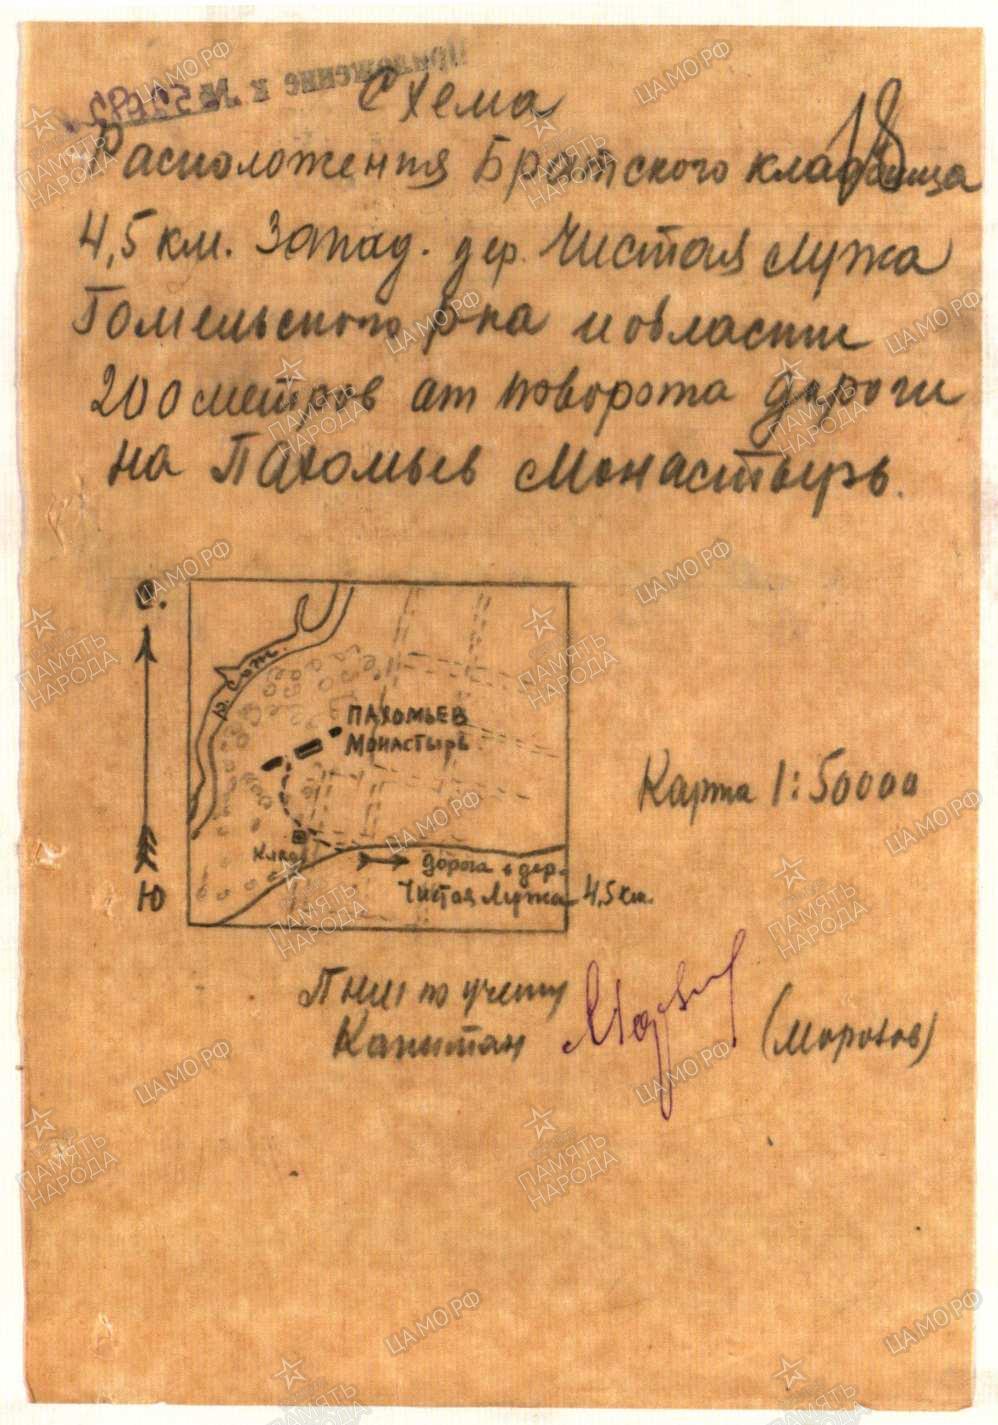 Приложение к №
18
Схема
Расположения Братского кладбища
4,5 км. Запад. дер. Чистая Лужа
Гомельского р-на и области
200 метров от поворота дороги
на Пахомьев Монастырь.
С.
р. Сож.
ПАХОМЬЕВ
МОНАСТЫРЬ
Карта 1:50000
Клад.
дорога в дер.
Чистая Лужа 4,5 км.
Ю
ПНШ по учету
Капитан
(Морозов)
ЦАМО РФ
ПАМЯТЬ НАРОДА